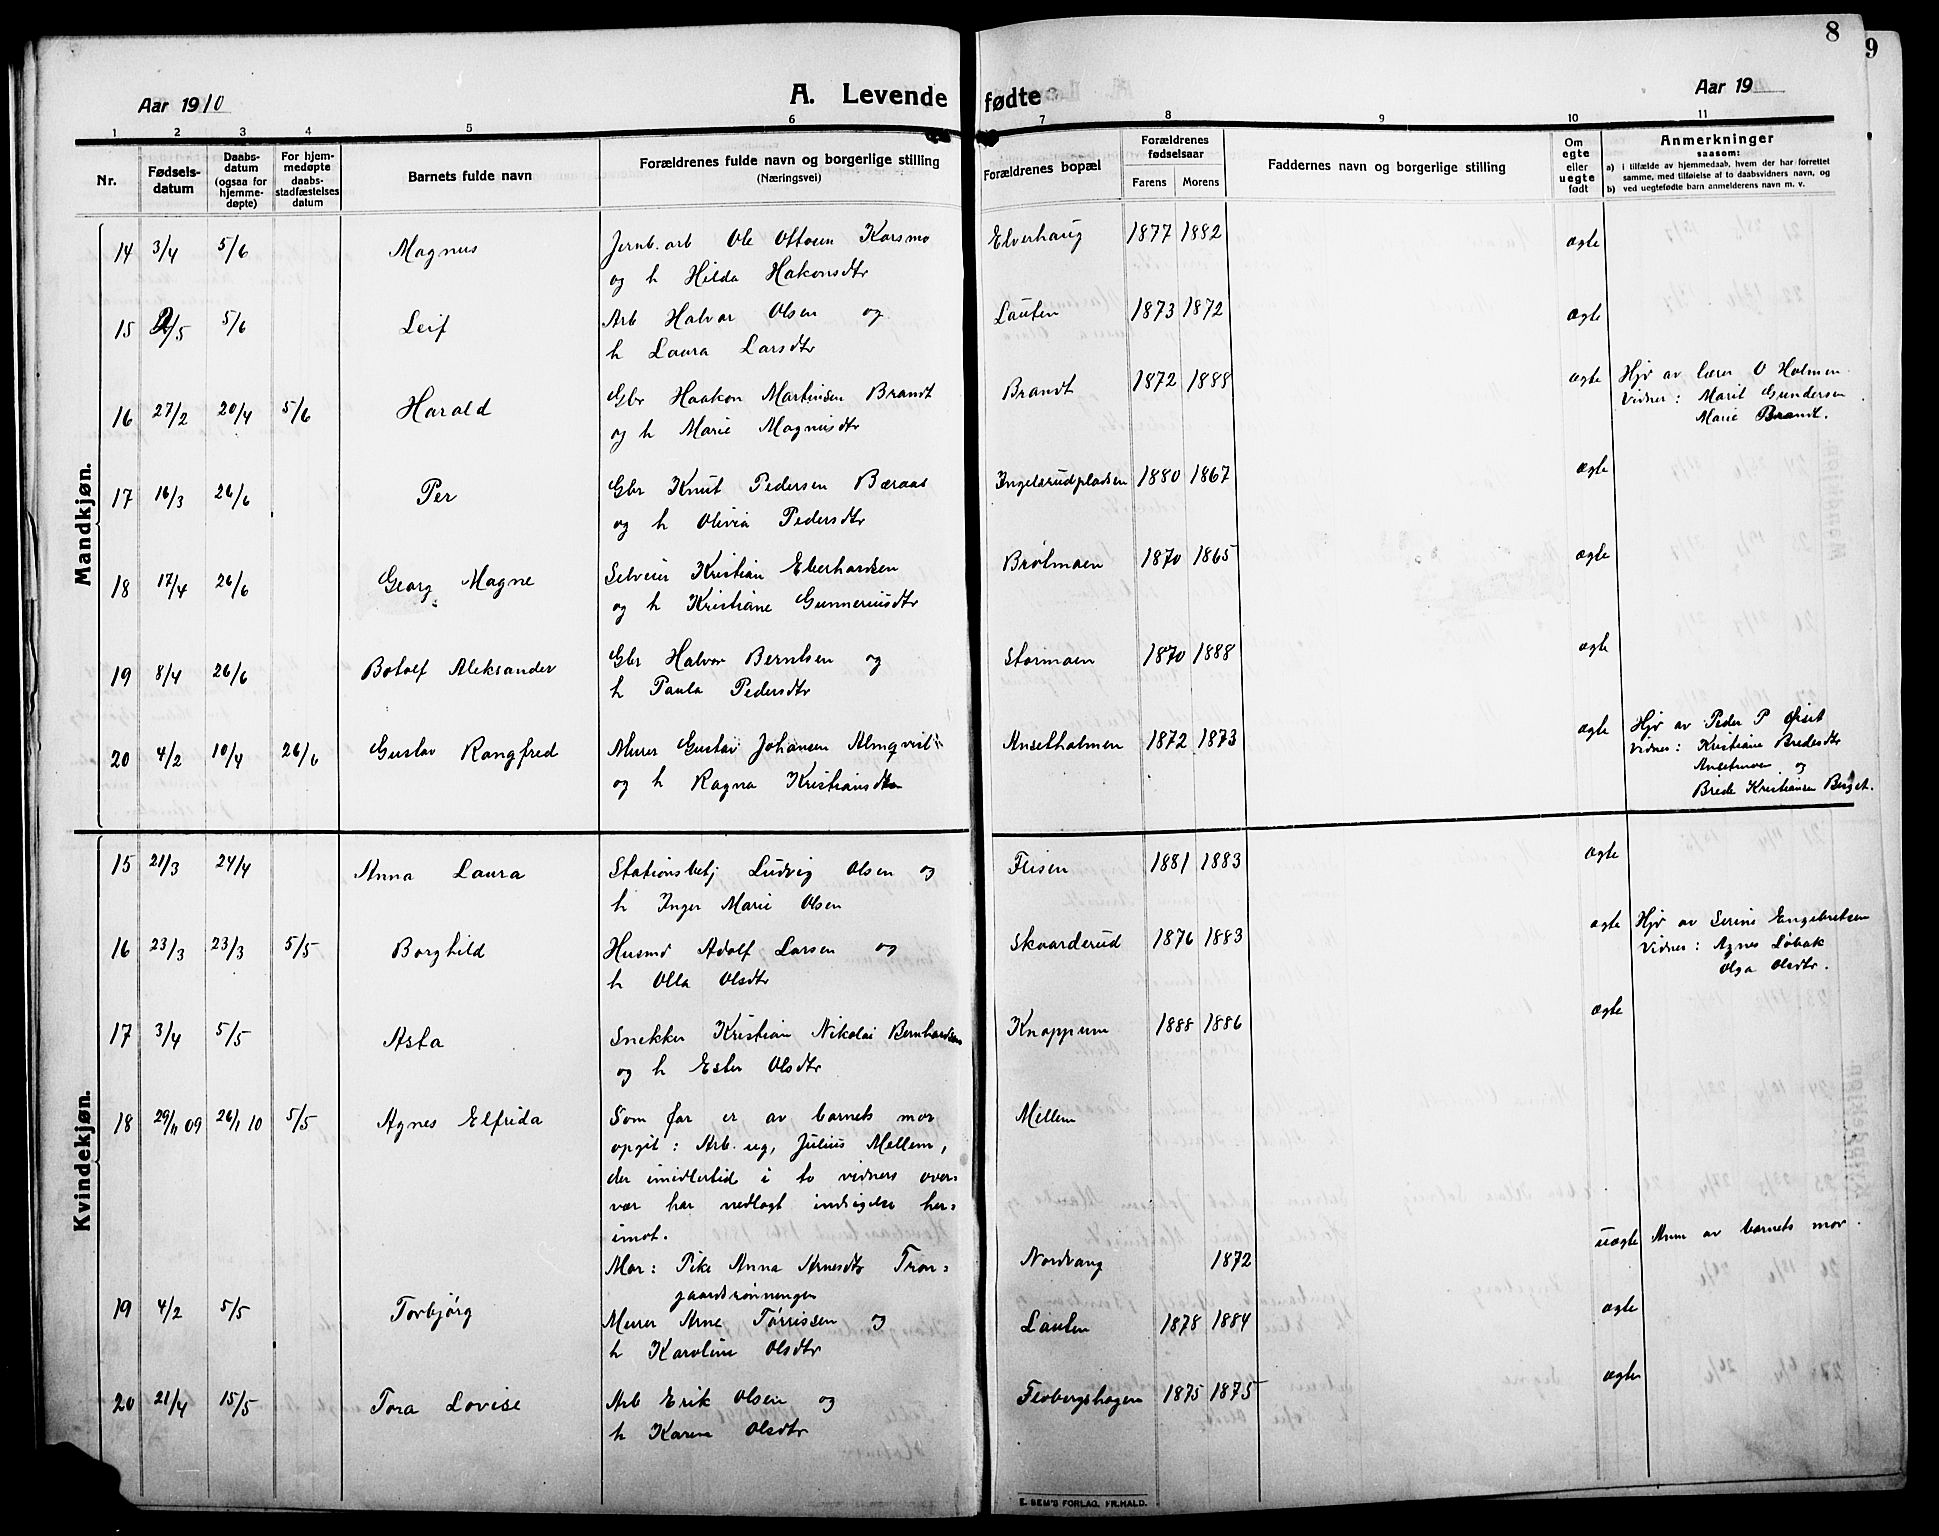 8
9
Aar 1910
A. Levende fødte
Aar 19
1 2 3 4 5 6 7 8 9 10 11
Nr.
Fødsels-
datum
Daabs-
datum
(ogsaa for
hjemme-
døpte)
For hjem-
medøpte
daabs-
stadfæstelses
datum
Barnets fulde navn
Forældrenes fulde navn og borgerlige stilling
(Næringsvei)
Forældrenes bopæl
Forældrenes
fødselsaar
Farens Morens
Faddernes navn og borgerlige stilling
Om
egte
eller
uegte
født
Anmerkninger
saasom:
a) i tilfælde av hjemmedaab, hvem der har forrettet
samme, med tilføielse af to daabsvidners navn, og
b) ved uegtefødte barn anmelderens navn m. v.
Mandkjøn.
14 3/4 5/6 Magnus Jernb.arb Ole Ottosen Karsmo Elverhaug 1877 1882 ægte
og h Hilda Hakonsdtr
15 2/5 5/6 Leif Arb Halvor Olsen og Lauten 1873 1872 ægte
h Laura Larsdtr
16 27/2 20/4 5/6 Harald Gbr Haakon Martinsen Brandt Brandt 1872 1888 ægte Hjd av lærer O Holmen.
og h Marie Magnusdtr Vidner: Marit Gundersen
Marie Brandt.
17 16/3 26/6 Per Gbr Knut Pedersen Bæraas Ingelsrudpladsen 1880 1867 ægte
og h Olivia Pedersdtr
18 17/4 26/6 Georg Magne Selveier Kristian Eberhardsen Brølmoen 1870 1865 ægte
og h Kristiane Gunneriusdtr
19 8/4 26/6 Botolf Aleksander Gbr Halvor Berntsen og Stormoen 1870 1888 ægte
h Paula Pedersdtr
20 4/2 10/4 26/6 Gustav Rangfred Murer Gustav Johansen Almqvist Ansetholmen 1872 1873 ægte Hjd av Peder P Øiset
og h Ragna Kristiansdtr Vidner: Kristiane Bredesdtr
Ansetmoen og
Brede Kristiansen Berget.
Kvindekjøn.
15 21/3 24/4 Anna Laura Stationsbetj Ludvig Olsen og Flisen 1881 1883 ægte
h Inger Marie Olsen
16 23/3 23/3 5/5 Borghild Husmd Adolf Larsen og Skaarderud 1876 1883 ægte Hjd av Serine Engebretsen
h Olla Olsdtr Vidner: Agnes Løbak
Olga Olsdtr.
17 3/4 5/5 Asta Snekker Kristian Nikolai Bernhardsen Knappum 1888 1886 ægte
og h Ester Olsdtr
18 29/11 09 26/1 10 5/5 Agnes Elfrida Som far er av barnets mor Mellem
opgit: Arb. ug, Julius Mellem,
der imidlertid i to vidners over-
vær har nedlagt indsigelse her-
imot.
uægte Anm av barnets mor.
Mor: Pike Anna Arnesdtr Tron- Nordvang 1872
gaardsrønningen
19 4/2 5/5 Torbjørg Murer Arne Tørrissen og Lauten 1878 1884 ægte
h Karoline Olsdtr
20 21/4 15/5 Tora Lovise Arb Erik Olsen og Flobergshagen 1875 1875 ægte
h Karen Olsdtr
E. SEM'S FORLAG. FR.HALD.